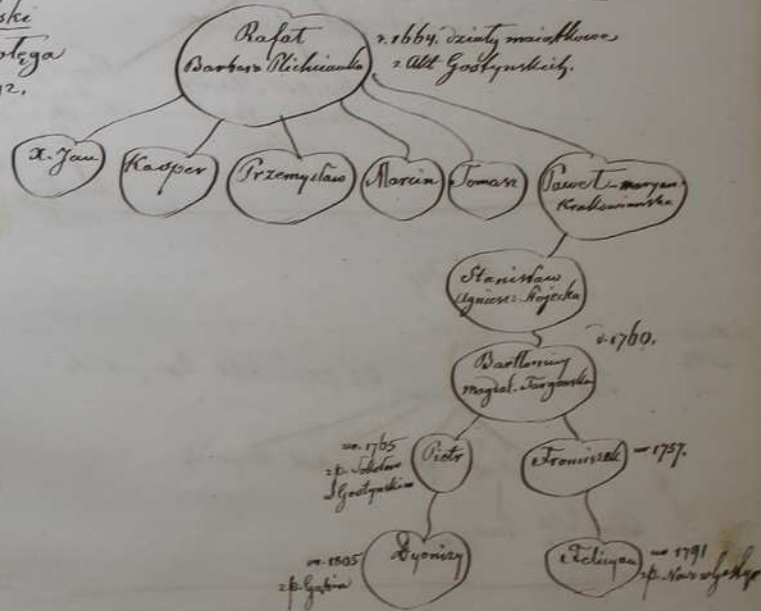 ski
Rafał
Barbara Plichcianka
r. 1664. działy maiątkowe
z Akt Gostyńskich.
X. Jan
Kasper
Przemysław
Marcin
Tomasz
Paweł – maryan.
Krakowianka
Stanisław
Agniesz.
r. 1760.
Bartłomiej
magdal. Targowska
ur. 1765
Gostyńskim
Piotr
Franciszek
ur 1757.
ur. 1805
z p. Gąbin
Dyonizy
Felicyan
ur 1791
z p.